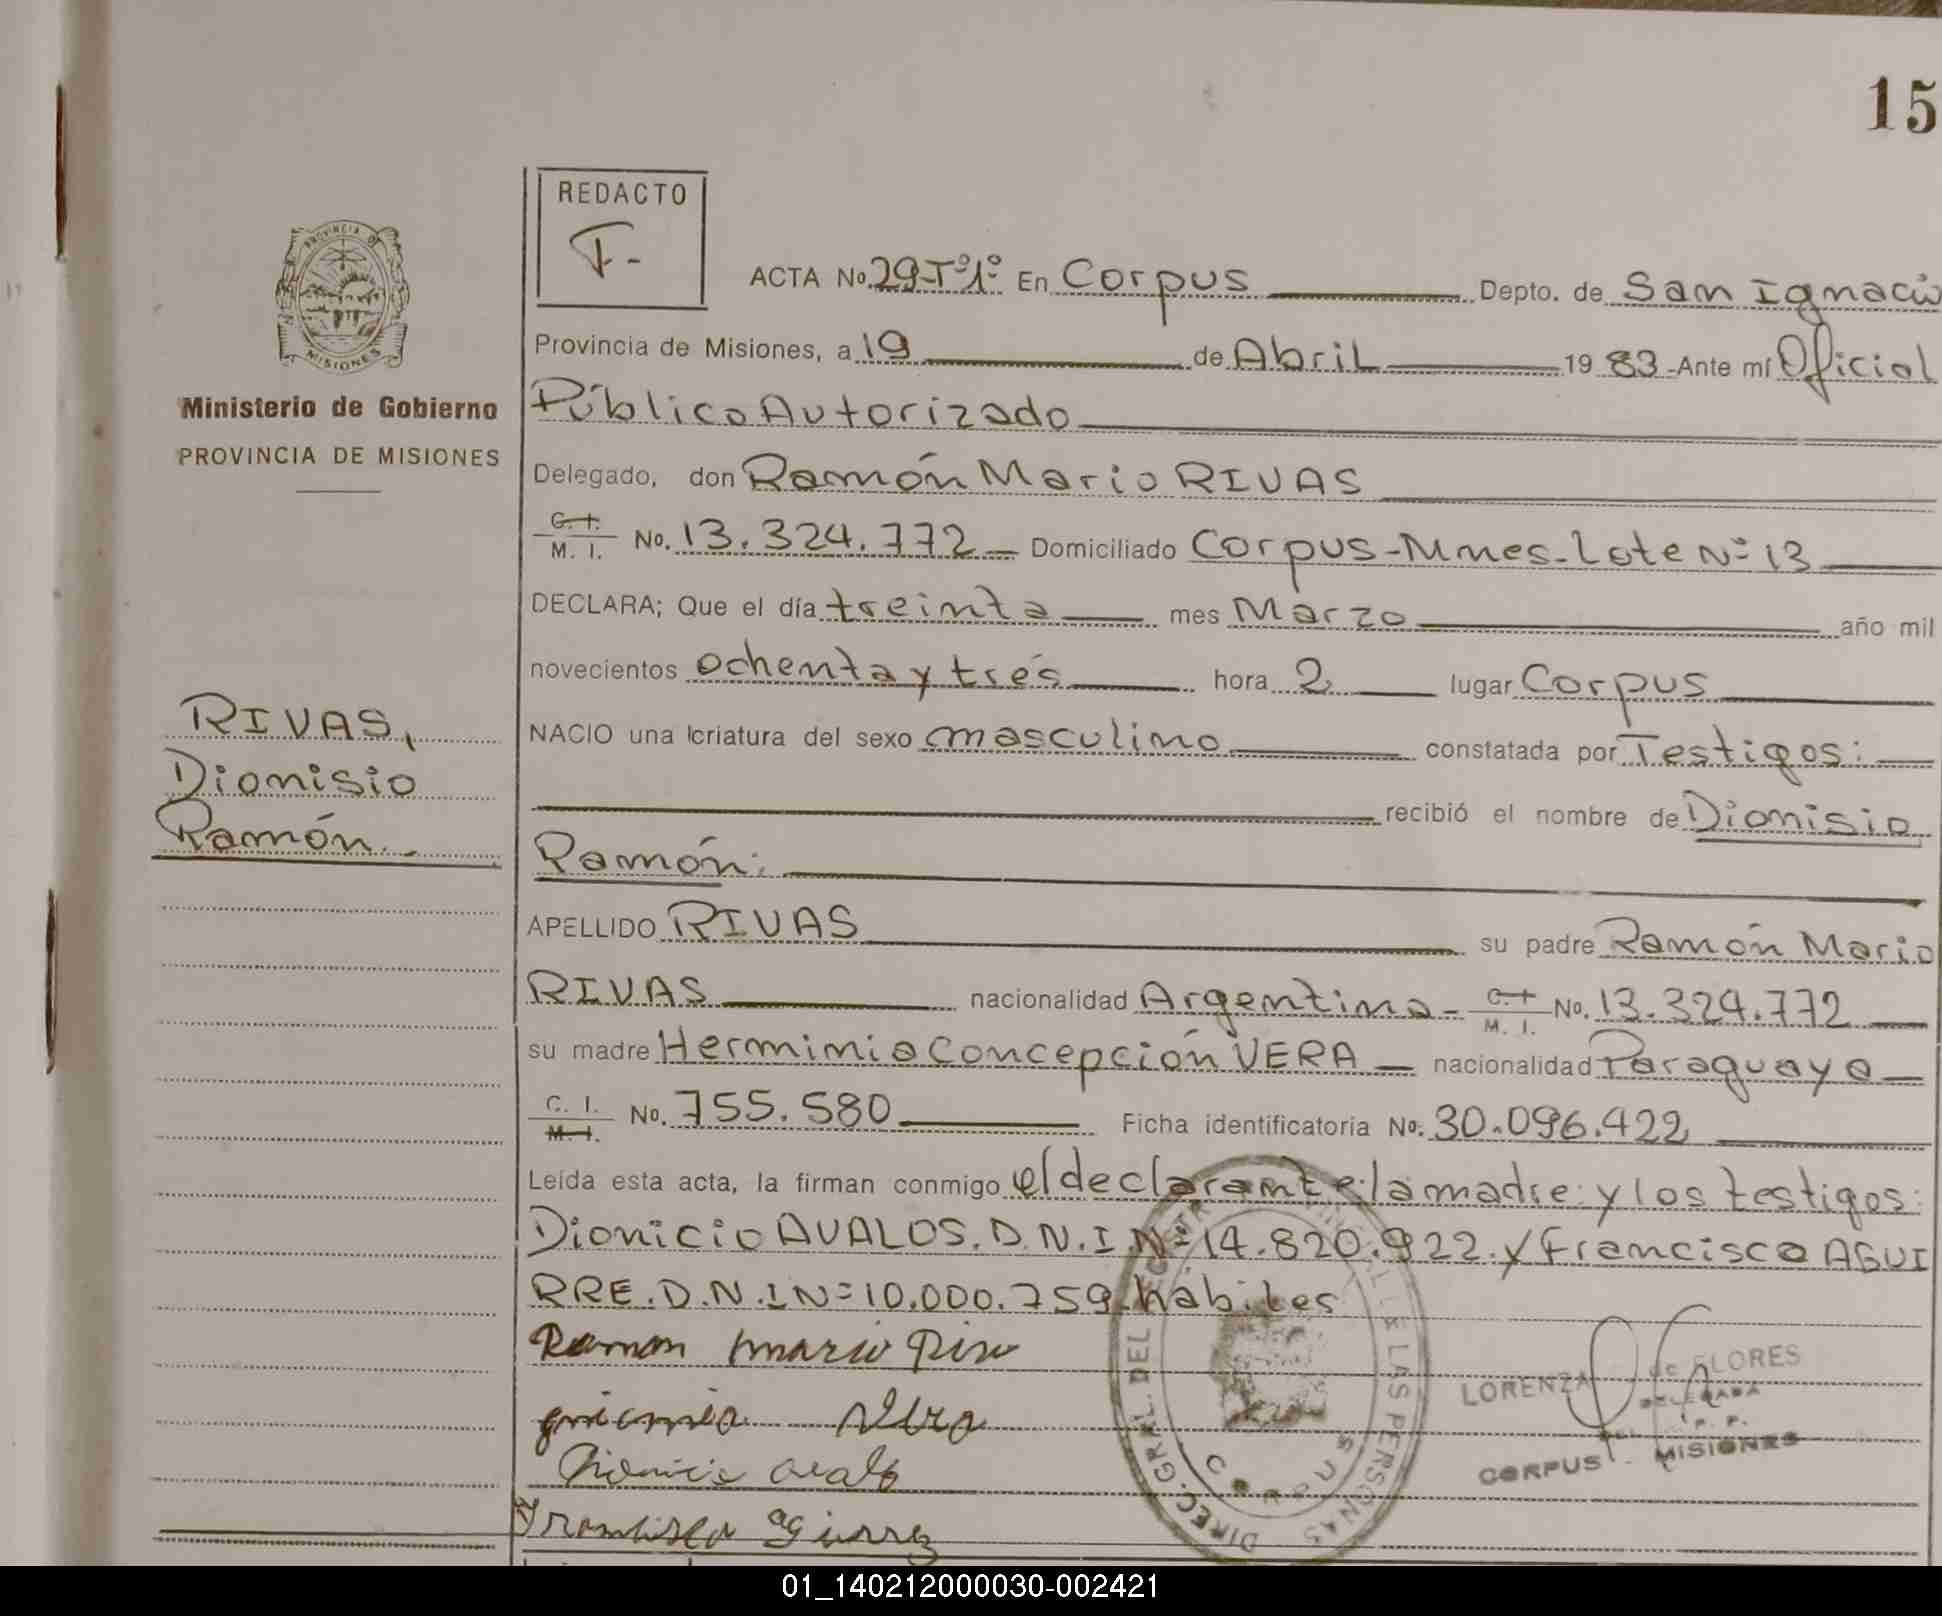 15
REDACTO
F-
ACTA No. 29-Tº1º En Corpus Depto. de San Ignacio
Provincia de Misiones, a 19 de Abril 1983-Ante mí Oficial
Ministerio de Gobierno
PROVINCIA DE MISIONES
Público Autorizado
Delegado, don Ramón Mario RIVAS
C. I. M. I. No. 13.324.772 Domiciliado Corpus-Mnes-Lote Nº 13
DECLARA; Que el día treinta mes Marzo año mil
novecientos ochenta y trés hora 2 lugar Corpus
RIVAS,
Dionisio
Ramón.-
NACIO una criatura del sexo masculino constatada por Testigos:
recibió el nombre de Dionisio
Ramón:
APELLIDO RIVAS su padre Ramón Mario
RIVAS nacionalidad Argentina- C. I. M. I. No. 13.324.772
su madre Herminia Concepción VERA nacionalidad Paraguaya
C. I. M. I. No. 755.580 Ficha identificatoria No. 30.096.422
Leída esta acta, la firman conmigo el declarante: la madre: y los testigos:
Dionicio AVALOS. D.N.I.Nº 14.820.922. y Francisco AGUI
RRE. D.N.I Nº 10.000.759 hábiles
Ramon mario
Vera
DIREC. GRAL. DEL DE LAS PERSONAS
CORPUS
LORENZA de FLORES
DELEGADA
CORPUS - MISIONES
01_140212000030-002421